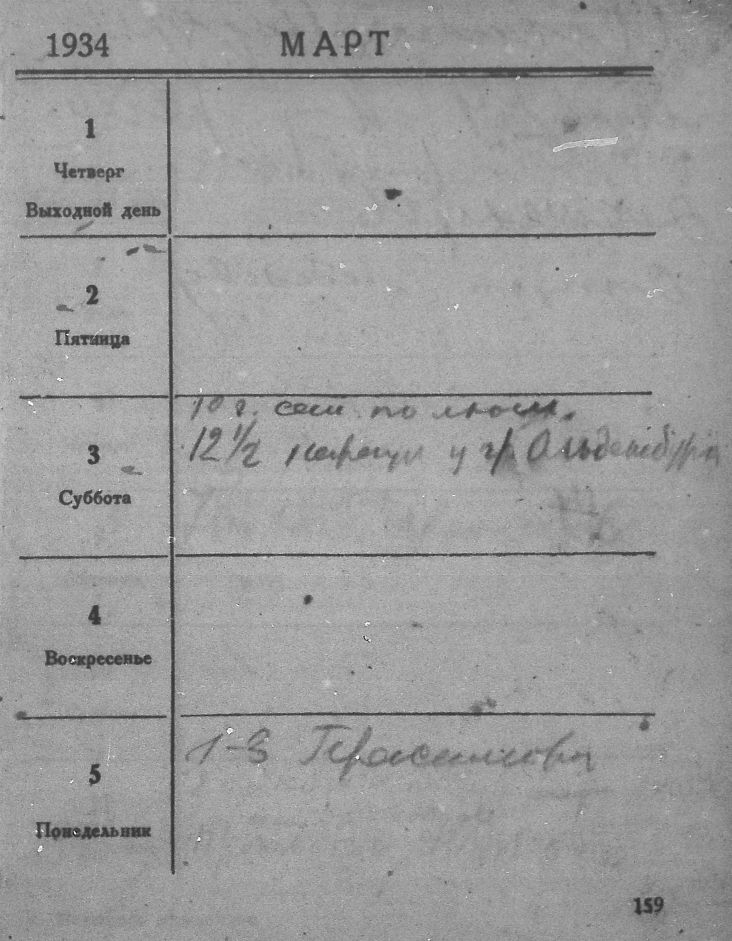 1934 МАРТ
1
Четверг
Выходной день
2
Пятница
10 г. по
3
12 1/2 у гр Ольденбурга
Суббота
4
Воскресенье
1-3
5
Понедельник
159